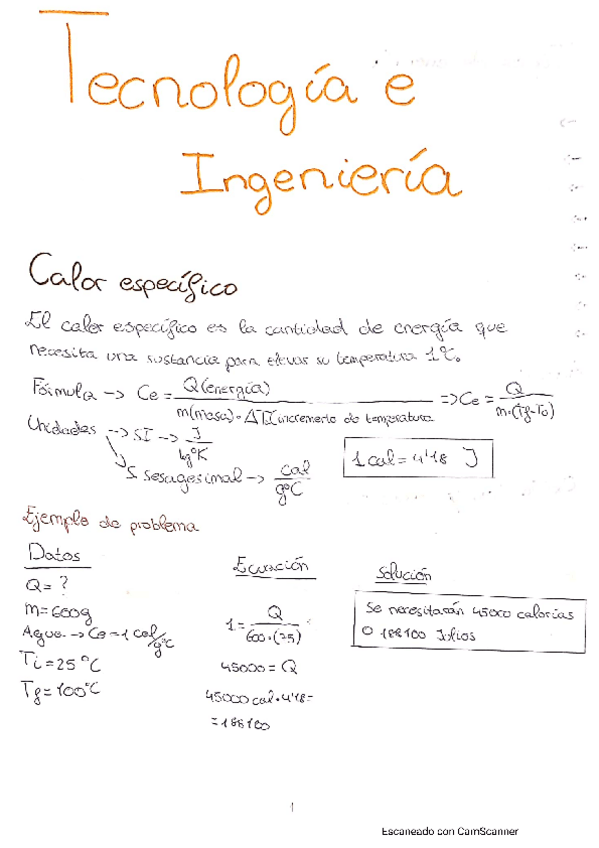 Tecnología e
Ingeniería
Calor específico
El calor específico es la cantidad de energía que
necesita una sustancia para elevar su temperatura 1ºC.
Fórmula -> Ce = Q(energía) / m(masa)·ΔT(incremento de temperatura => Ce = Q / m·(Tf-To)
Unidades --> SI -> J / kgºK
S. sesagesimal -> cal / gºC
1 cal = 4'18 J
Ejemplo de problema
Datos
Q = ?
m = 600g
Agua -> Ce = 1 cal/gºC
Ti = 25 ºC
Tf = 100ºC
Ecuación
1 = Q / 600·(75)
45000 = Q
45000 cal · 4'18 =
= 188100
Solución
Se necesitarán 45000 calorías
o 188100 Julios
1
Escaneado con CamScanner